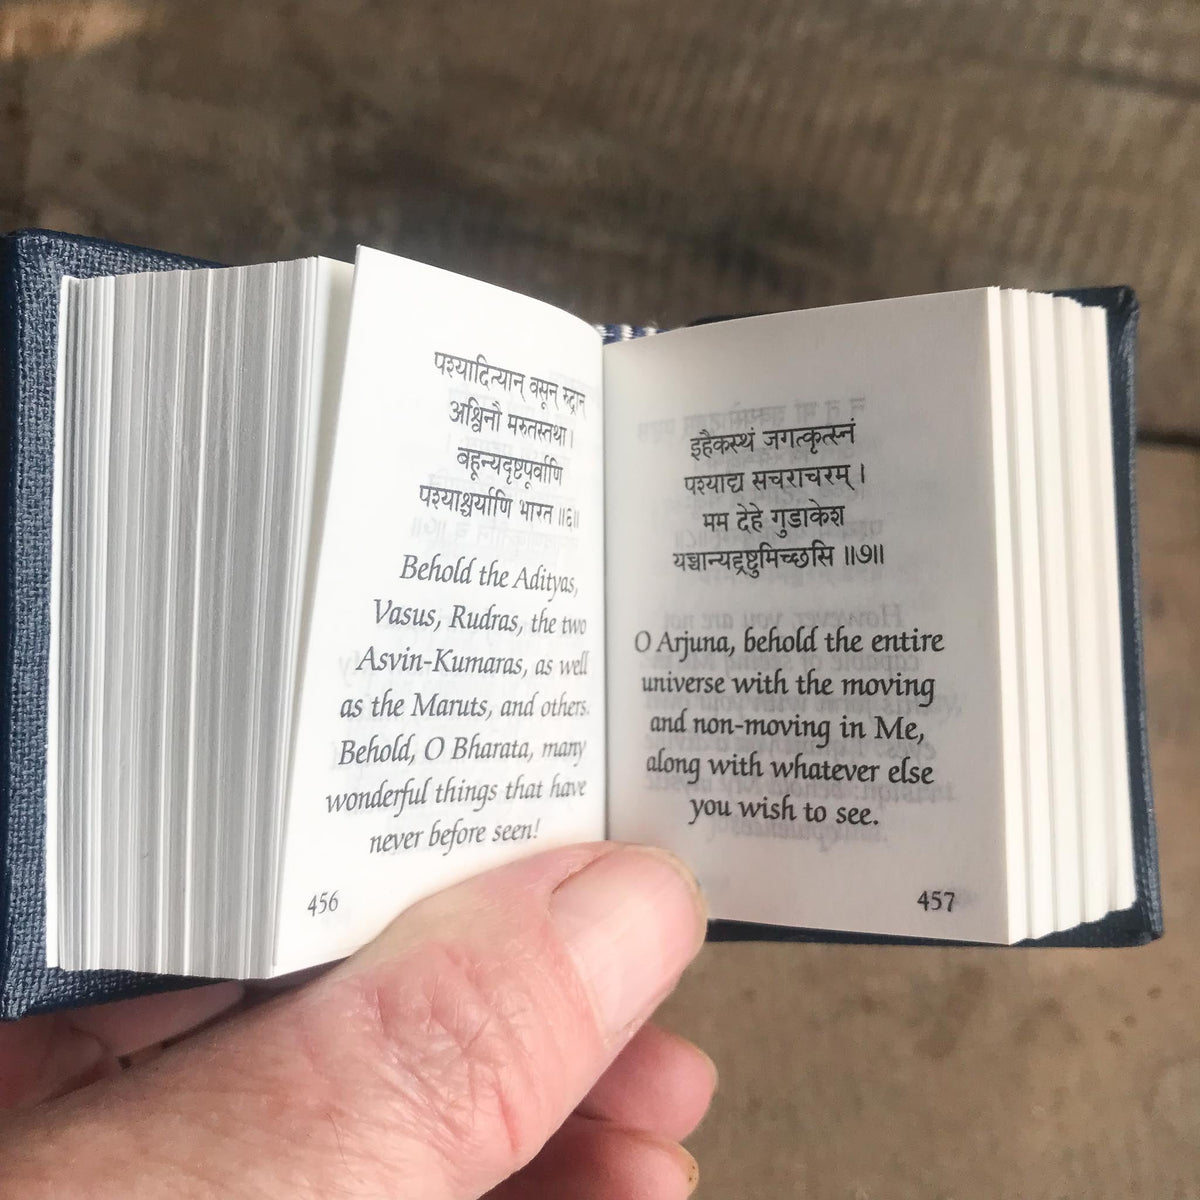 पश्यादित्यान् वसून् रुद्रान्
अश्विनौ मरुतस्तथा।
बहून्यदृष्टपूर्वाणि
पश्याश्चर्याणि भारत ॥६॥
Behold the Adityas,
Vasus, Rudras, the two
Asvin-Kumaras, as well
as the Maruts, and others.
Behold, O Bharata, many
wonderful things that have
never before seen!
456
इहैकस्थं जगत्कृत्स्नं
पश्याद्य सचराचरम्।
मम देहे गुडाकेश
यच्चान्यद्द्रष्टुमिच्छसि ॥७॥
O Arjuna, behold the entire
universe with the moving
and non-moving in Me,
along with whatever else
you wish to see.
457